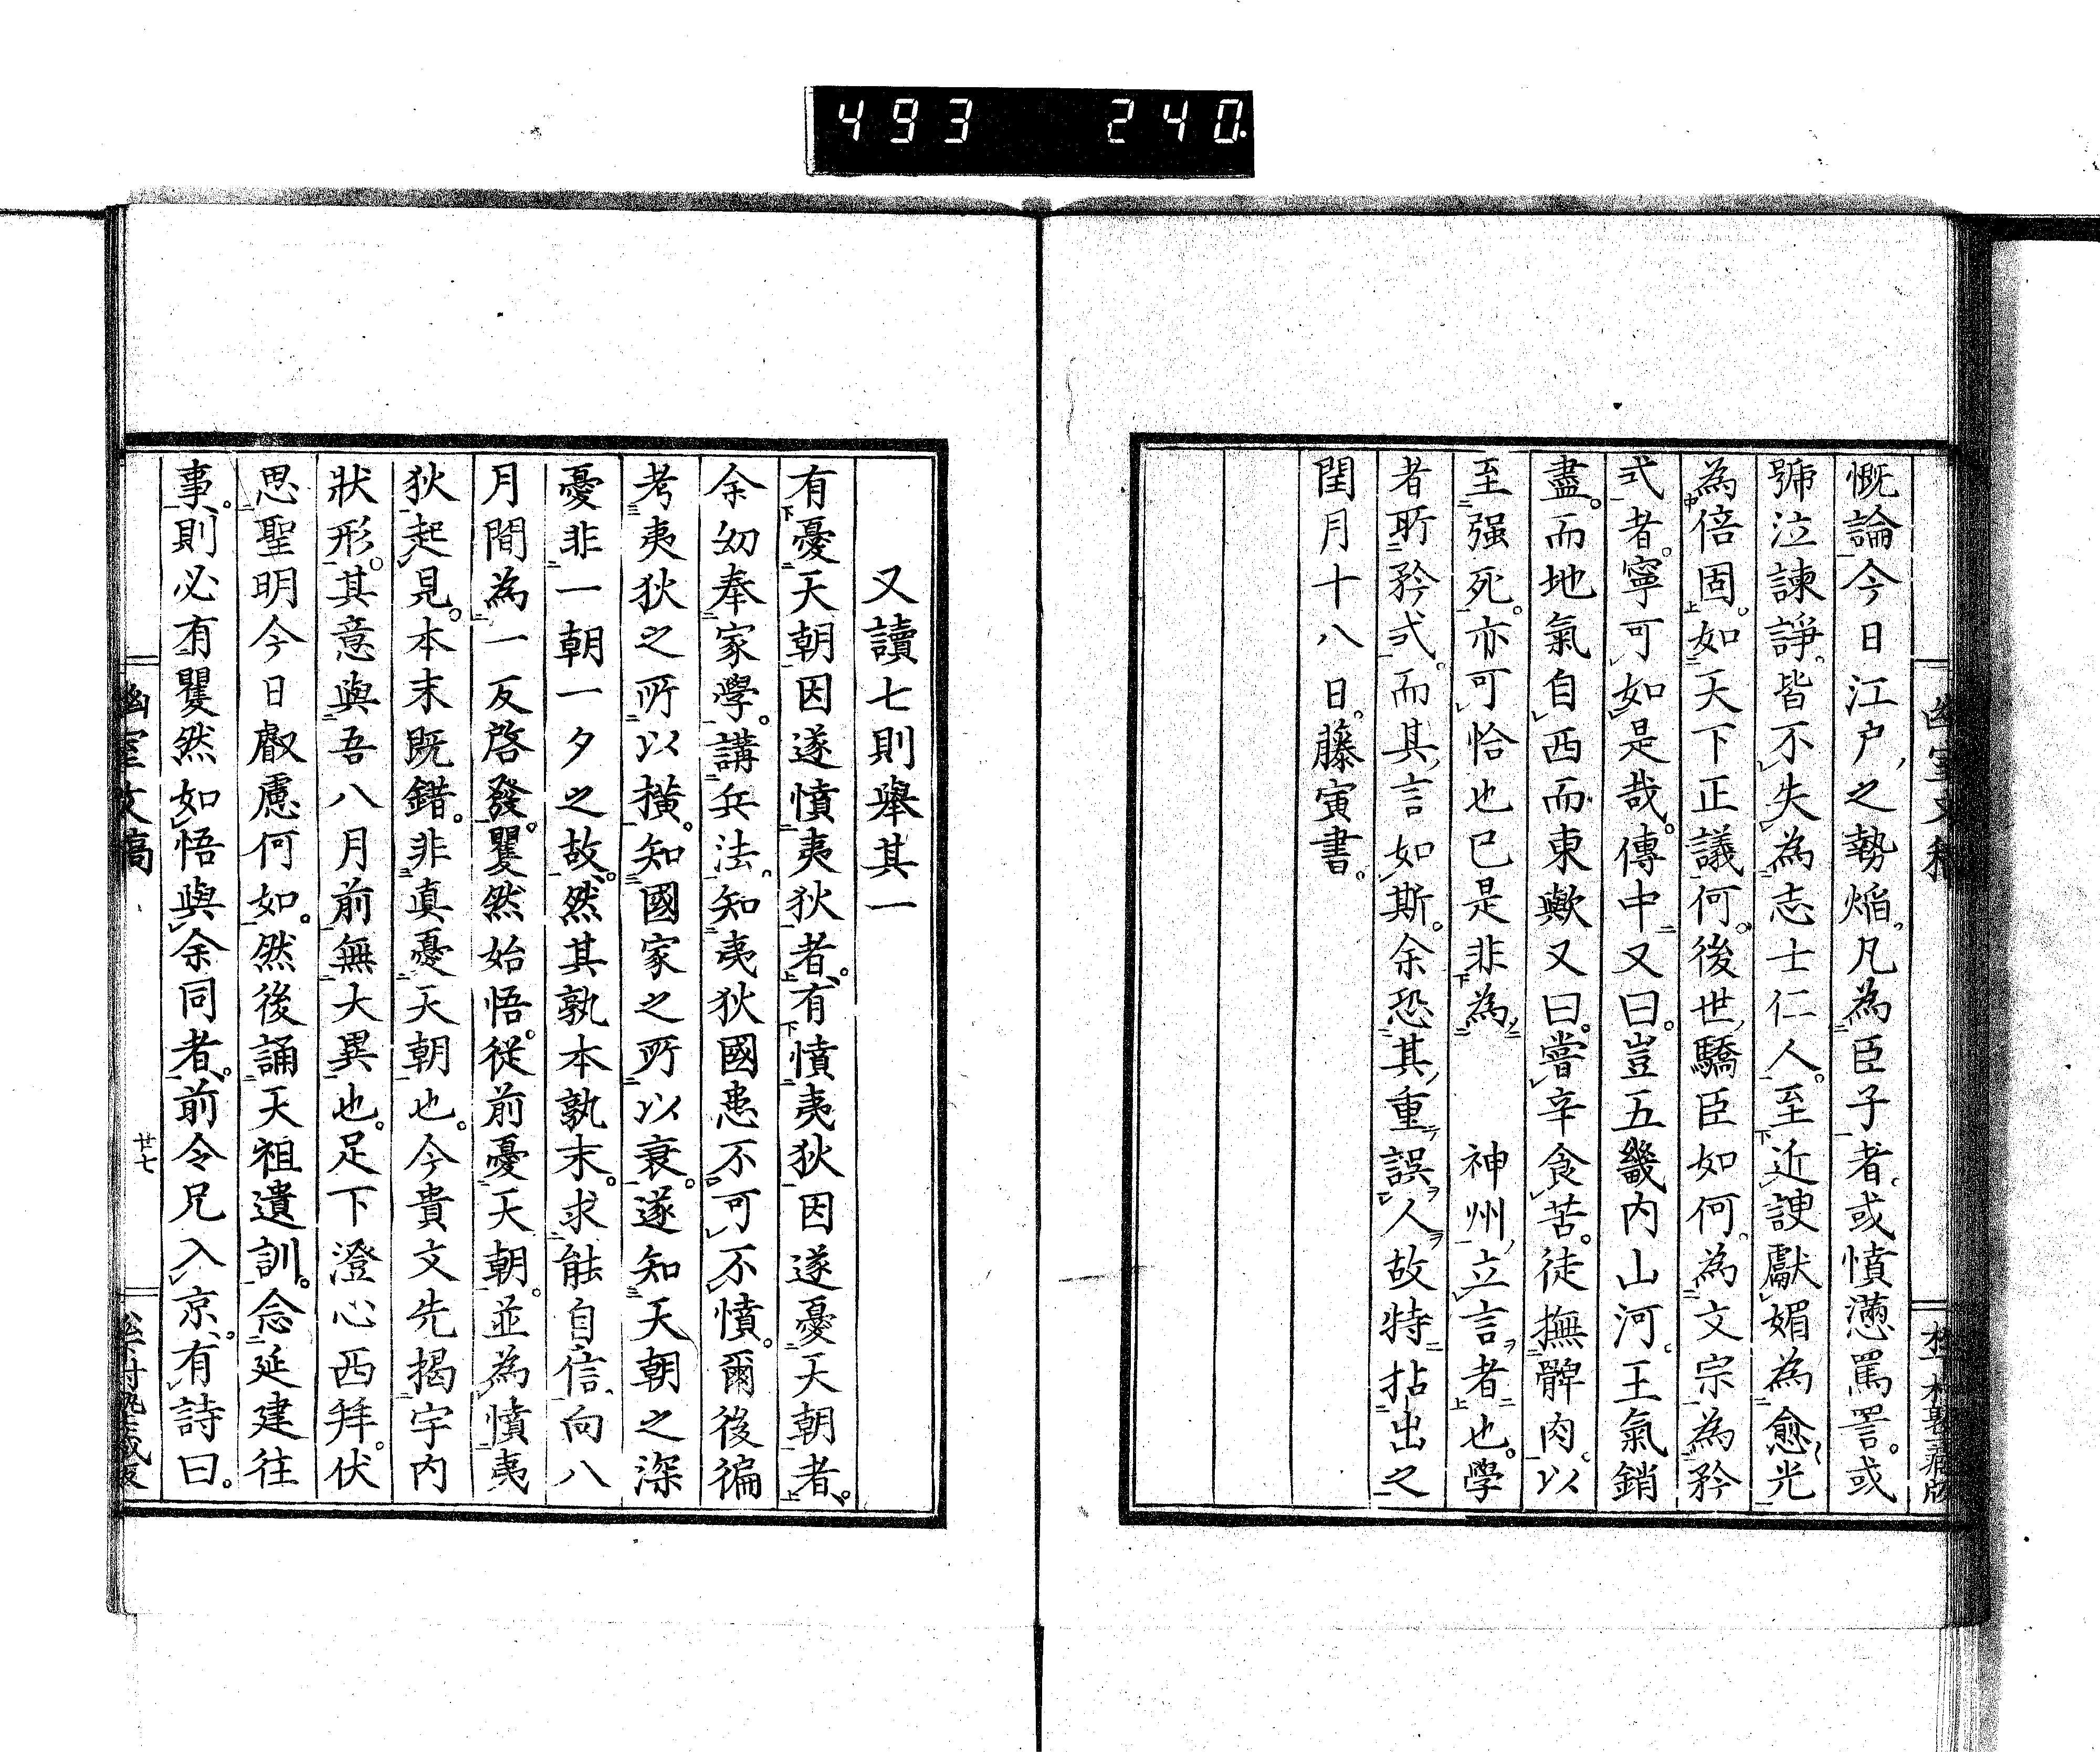 493 240.
慨論今日江戸之勢焔。凡為臣子者。或憤懣罵詈。或
號泣諫諍。皆不失為志士仁人。至近諛獻媚為愈光
為倍固。如天下正議何。後世驕臣如何。為文宗為矜
式者。寧可如是哉。傳中又曰。豈五畿内山河。王氣銷
盡。而地氣自西而東歟又曰。嘗辛食苦。徒撫髀肉。以
至强死。亦可恰也已是非為 神州立言者也。學
者所矜式。而其言如斯。余恐其重誤人故特拈出之
閏月十八日。藤寅書。
又讀七則舉其一
有憂天朝因遂憤夷狄者。有憤夷狄因遂憂天朝者。
余幼奉家學。講兵法。知夷狄國患不可不憤。爾後徧
考夷狄之所以擴。知國家之所以衰。遂知天朝之深
憂非一朝一夕之故。然其孰本孰末。求能自信。向八
月間為一反啓發。矍然始悟。從前憂天朝。並為憤夷
狄起見。本末既錯。非真憂天朝也。今貴文先揭宇内
狀形。其意與吾八月前無大異也。足下澄心西拜。伏
思聖明今日叡慮何如。然後誦天祖遺訓。念延建往
事。則必有矍然如悟與余同者。前令兄入京。有詩曰。
幽室文稿
廿七